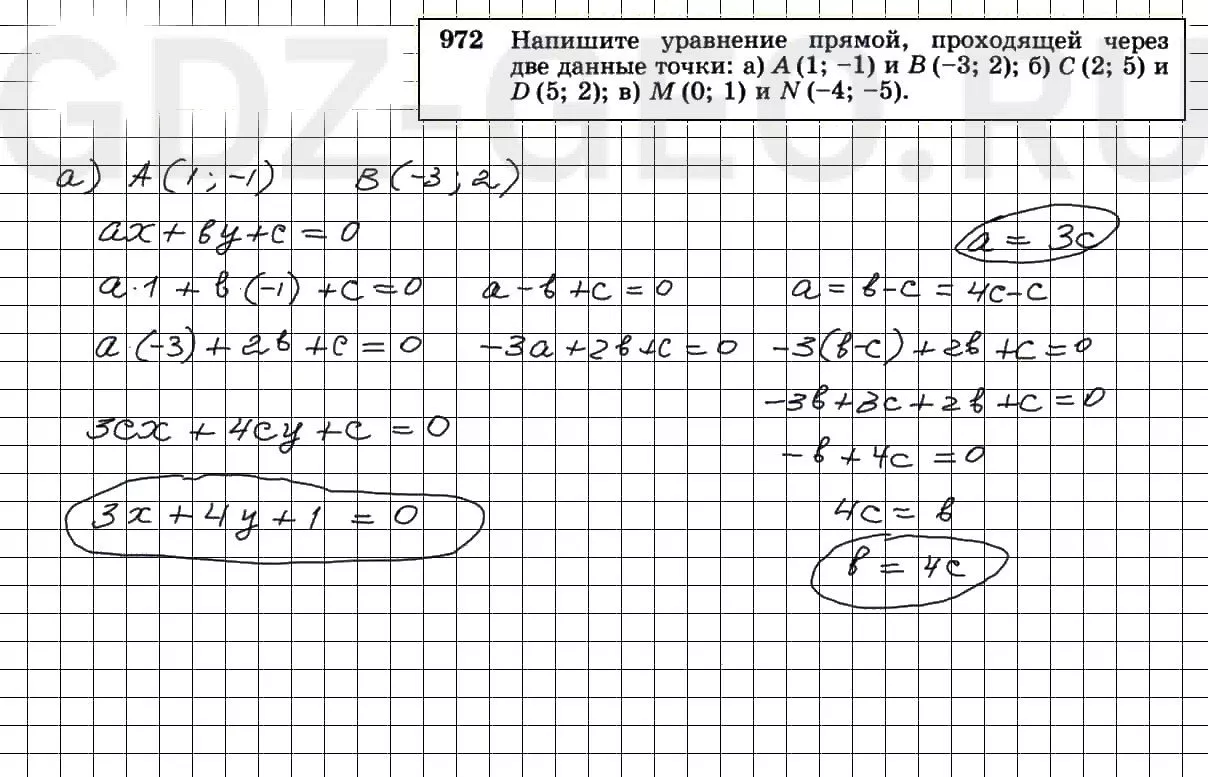 GDZ-GEO.RU
972 Напишите уравнение прямой, проходящей через
две данные точки: а) A (1; −1) и B (−3; 2); б) C (2; 5) и
D (5; 2); в) M (0; 1) и N (−4; −5).
а) A (1; -1) B (-3; 2)
ax + вy + c = 0
a = 3c
a · 1 + в · (-1) + c = 0 a - в + c = 0 a = в - c = 4c - c
a · (-3) + 2в + c = 0 -3a + 2в + c = 0 -3(в - c) + 2в + c = 0
-3в + 3c + 2в + c = 0
3cx + 4cy + c = 0
-в + 4c = 0
3x + 4y + 1 = 0
4c = в
в = 4c